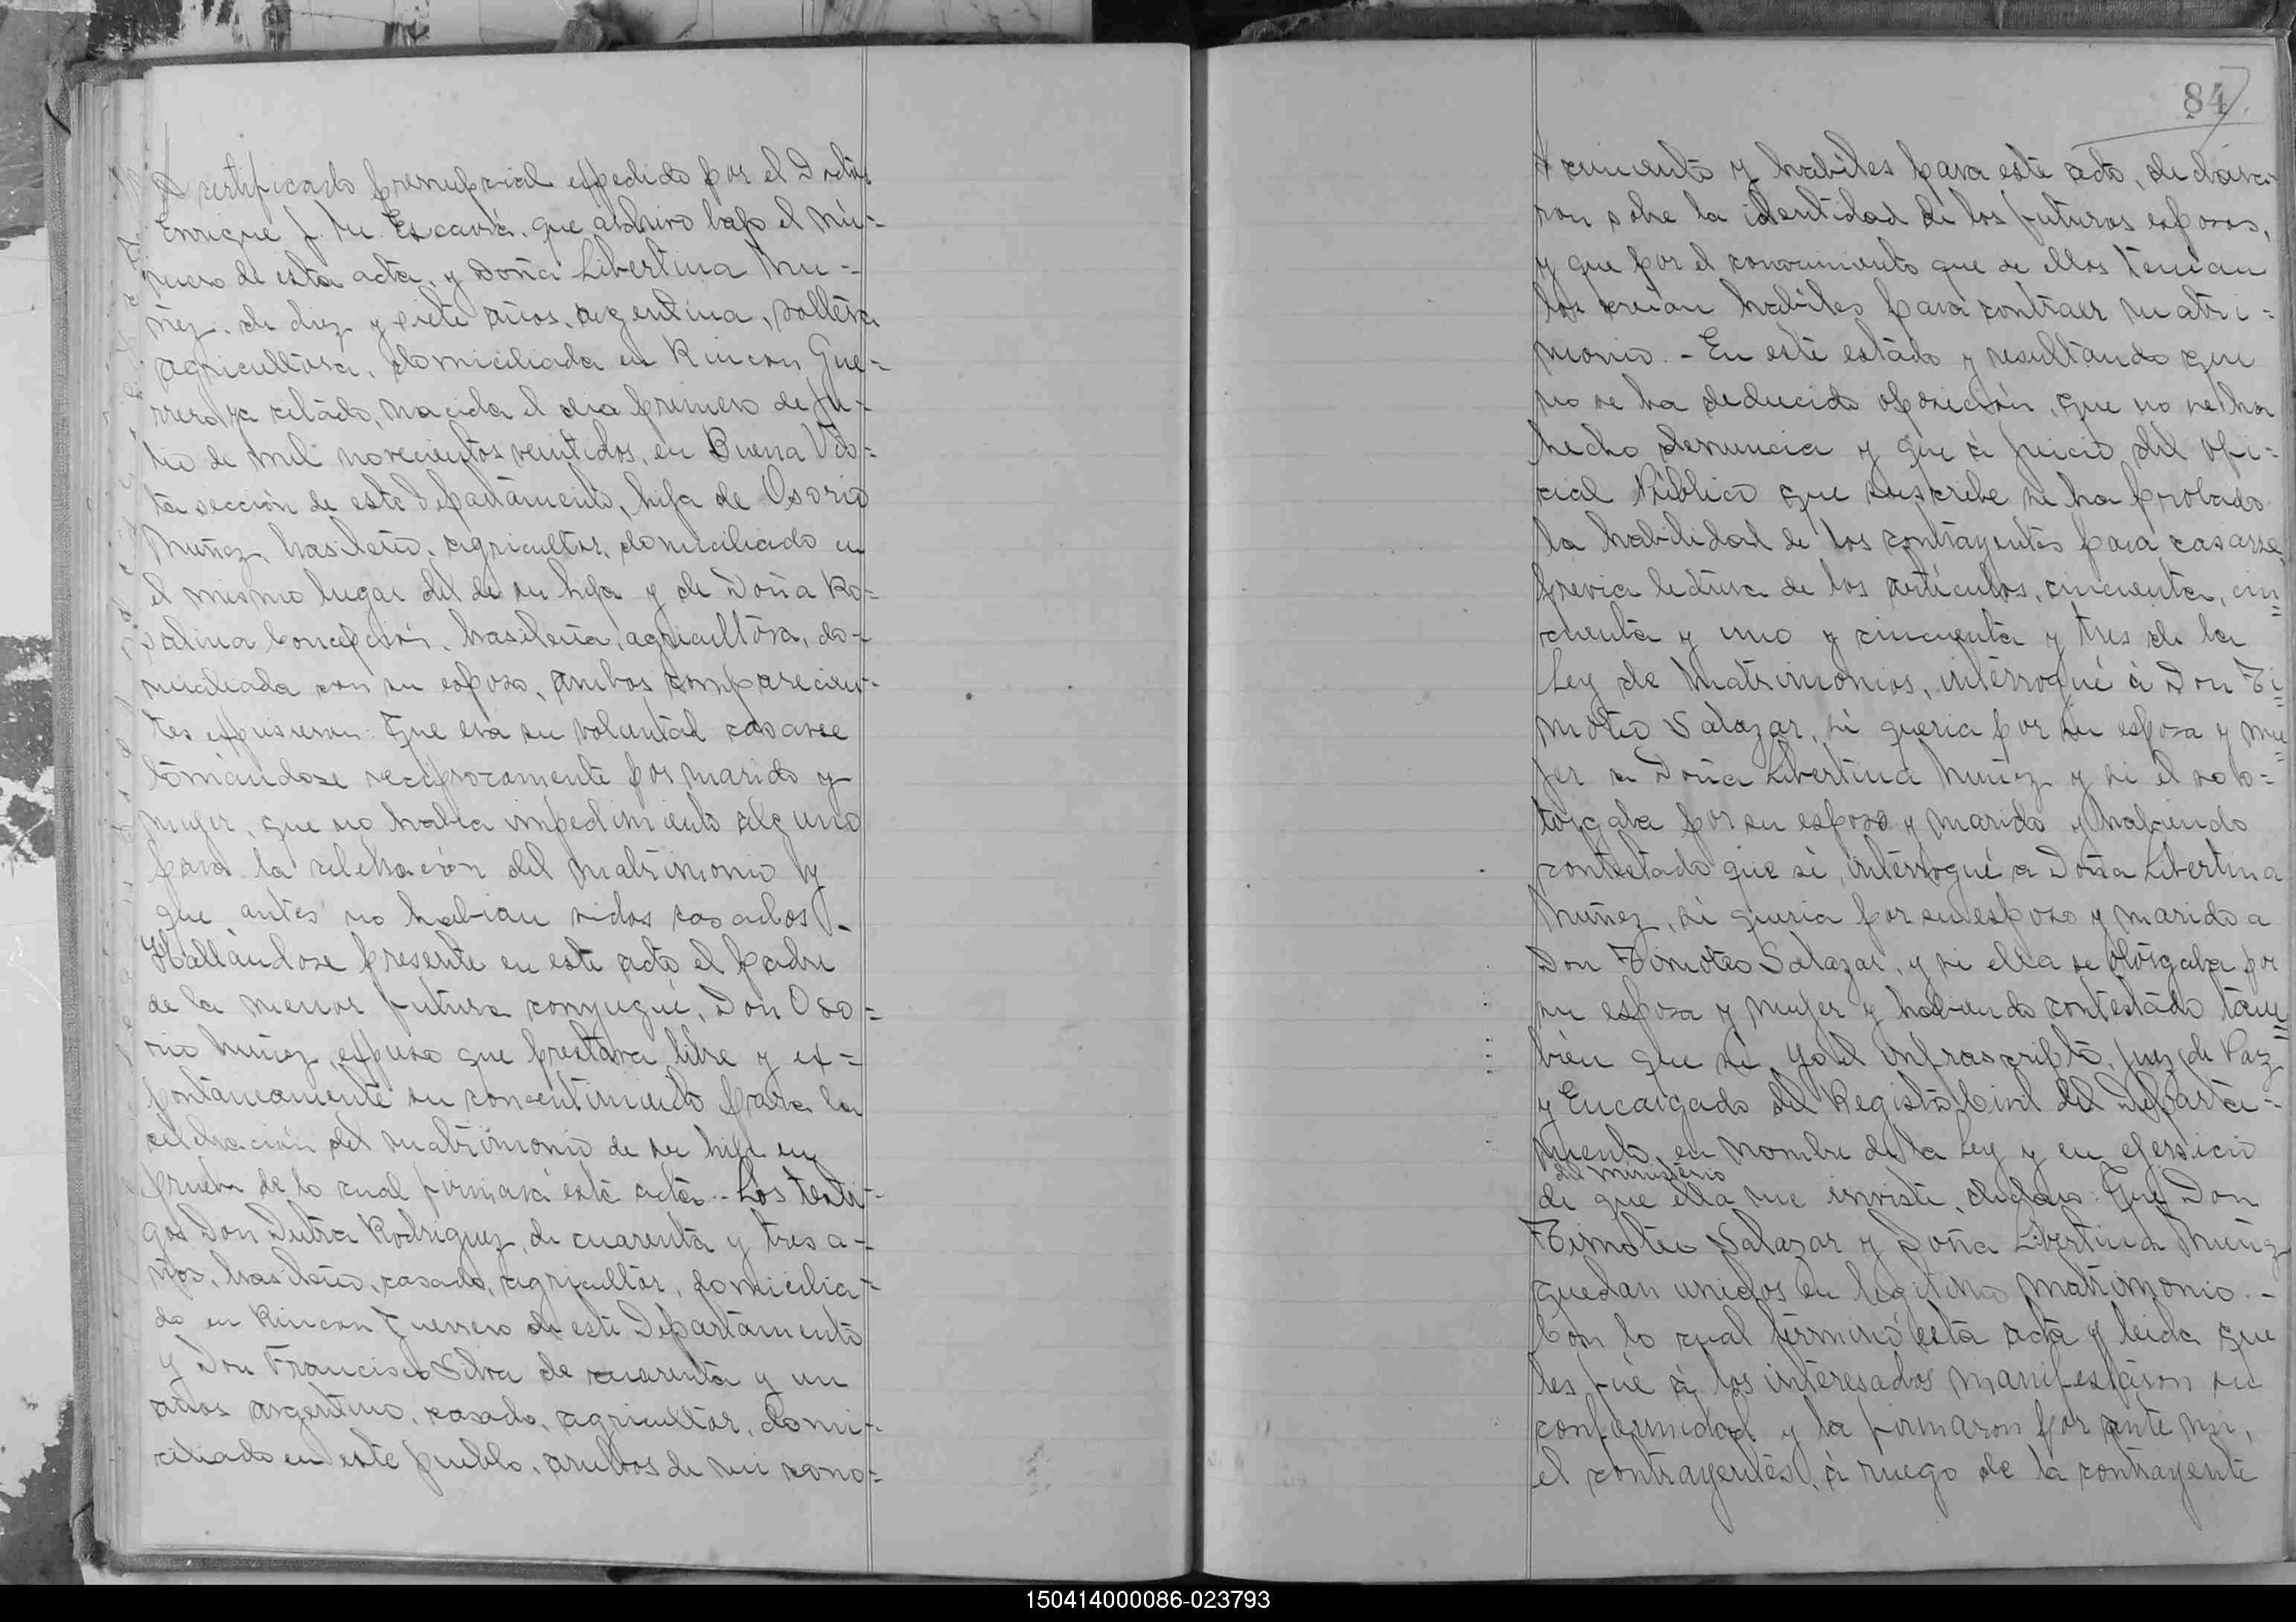 certificado prenupcial expedido por el Doctor
Enrique J. M. Escavá, que archivo bajo el nú=
mero de esta acta, y Doña Libertina Mu=
ñez, de diez y siete años, argentina, soltera
agricultora, domiciliada en Rincon Gue=
rrero ya citado, nacida el dia primero de Ju=
nio de mil novecientos veintidos, en Buena Vis=
ta sección de este Departamento, hija de Osorio
Muñez, brasileño, agricultor, domiciliado en
el mismo lugar del de su hija y de Doña Ro=
salina Concepción, brasileña, agricultora, do=
miciliada con su esposo, ambos comparecien=
tes expusieron: Que era su voluntad casarse
tomándose reciprocamente por marido y
mujer, que no habia impedimiento alguno
para la celebración del matrimonio y
que antes no habian sidos casados.-
Hallándose presente en este acto el padre
de la menor futura conyugue, Don Oso=
rio Muñez, expuso que prestava libre y ex=
pontaneamente su consentimiento para la
celebración del matrimonio de su hija en
prueba de lo cual firmará esta acta.- Los testi=
gos Don Dutra Rodriguez, de cuarenta y tres a=
ños, brasileño, casado, agricultor, domicilia=
do en Rincon Guerrero de este Departamento
y Don Francisco Silva de cuarenta y un
años argentino, casado, agricultor, domi=
ciliado en este pueblo, ambos de mi cono=
84
cimiento y habiles para este acto, declara=
ron sobre la identidad de los futuros esposos,
y que por el conocimiento que de ellos tenian
los creian habiles para contraer matri=
monio.- En este estado y resultando que
no se ha deducido oposición, que no se ha
hecho denuncia y que á juicio del ofi=
cial Público que suscribe se ha probado
la habilidad de los contrayentes para casarse
previa lectura de los artículos, cincuenta, cin=
cuenta y uno y cincuenta y tres de la
Ley de Matrimonios, interrogué á Don Ti=
moteo Salazar, si queria por su esposa y mu=
jer a Doña Libertina Muñez y si el se o=
torgaba por su esposo y marido y habiendo
contestado que si, interrogué a Doña Libertina
Muñez, si queria por su esposo y marido a
Don Timoteo Salazar, y si ella se otorgaba por
su esposa y mujer y habiendo contestado tam=
bien que si, yo el infrascripto, Juez de Paz
y Encargado del Registro Civil del Departa=
mento, en nombre de la Ley y en ejersicio
del ministerio
de que ella me inviste, declaro: Que Don
Timoteo Salazar y Doña Libertina Muñez
quedan unidos en legitimo matrimonio.-
Con lo cual terminó esta acta y leida que
les fué á los interesados manifestaron su
conformidad y la firmaron por ante mi,
el contrayentes, á ruego de la contrayente
150414000086-023793